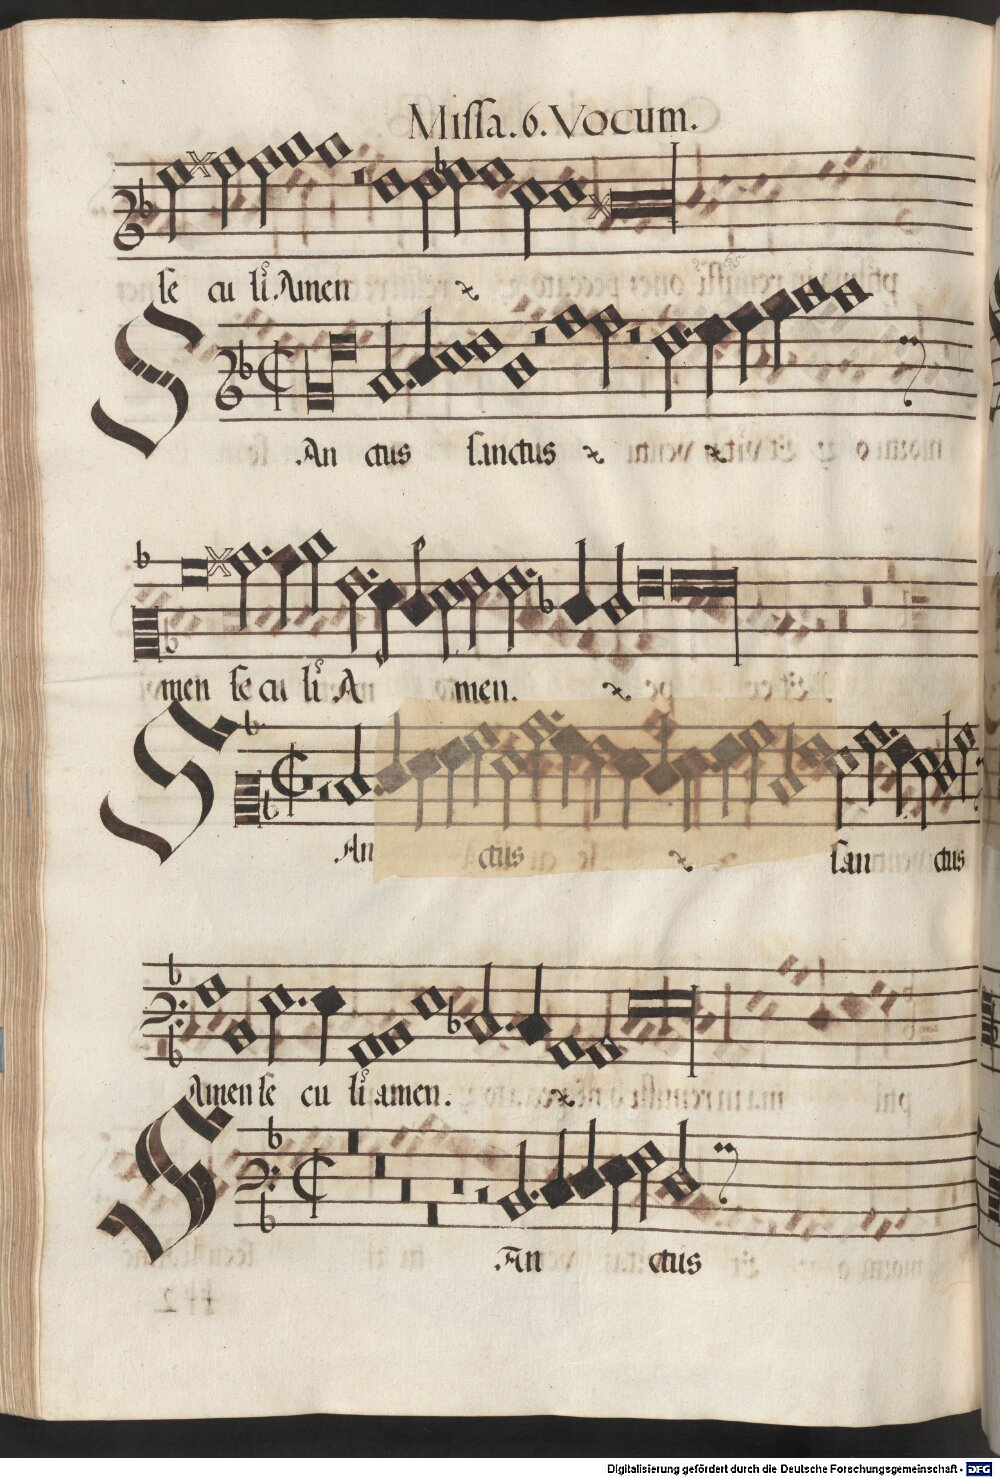 Missa. 6. Vocum.
se cu lⁱ. Amen
An ctus sanctus
men se cu lⁱ. A men.
An ctus san ctus
Amen se cu lⁱ amen.
An ctus
Digitalisierung gefördert durch die Deutsche Forschungsgemeinschaft - DFG